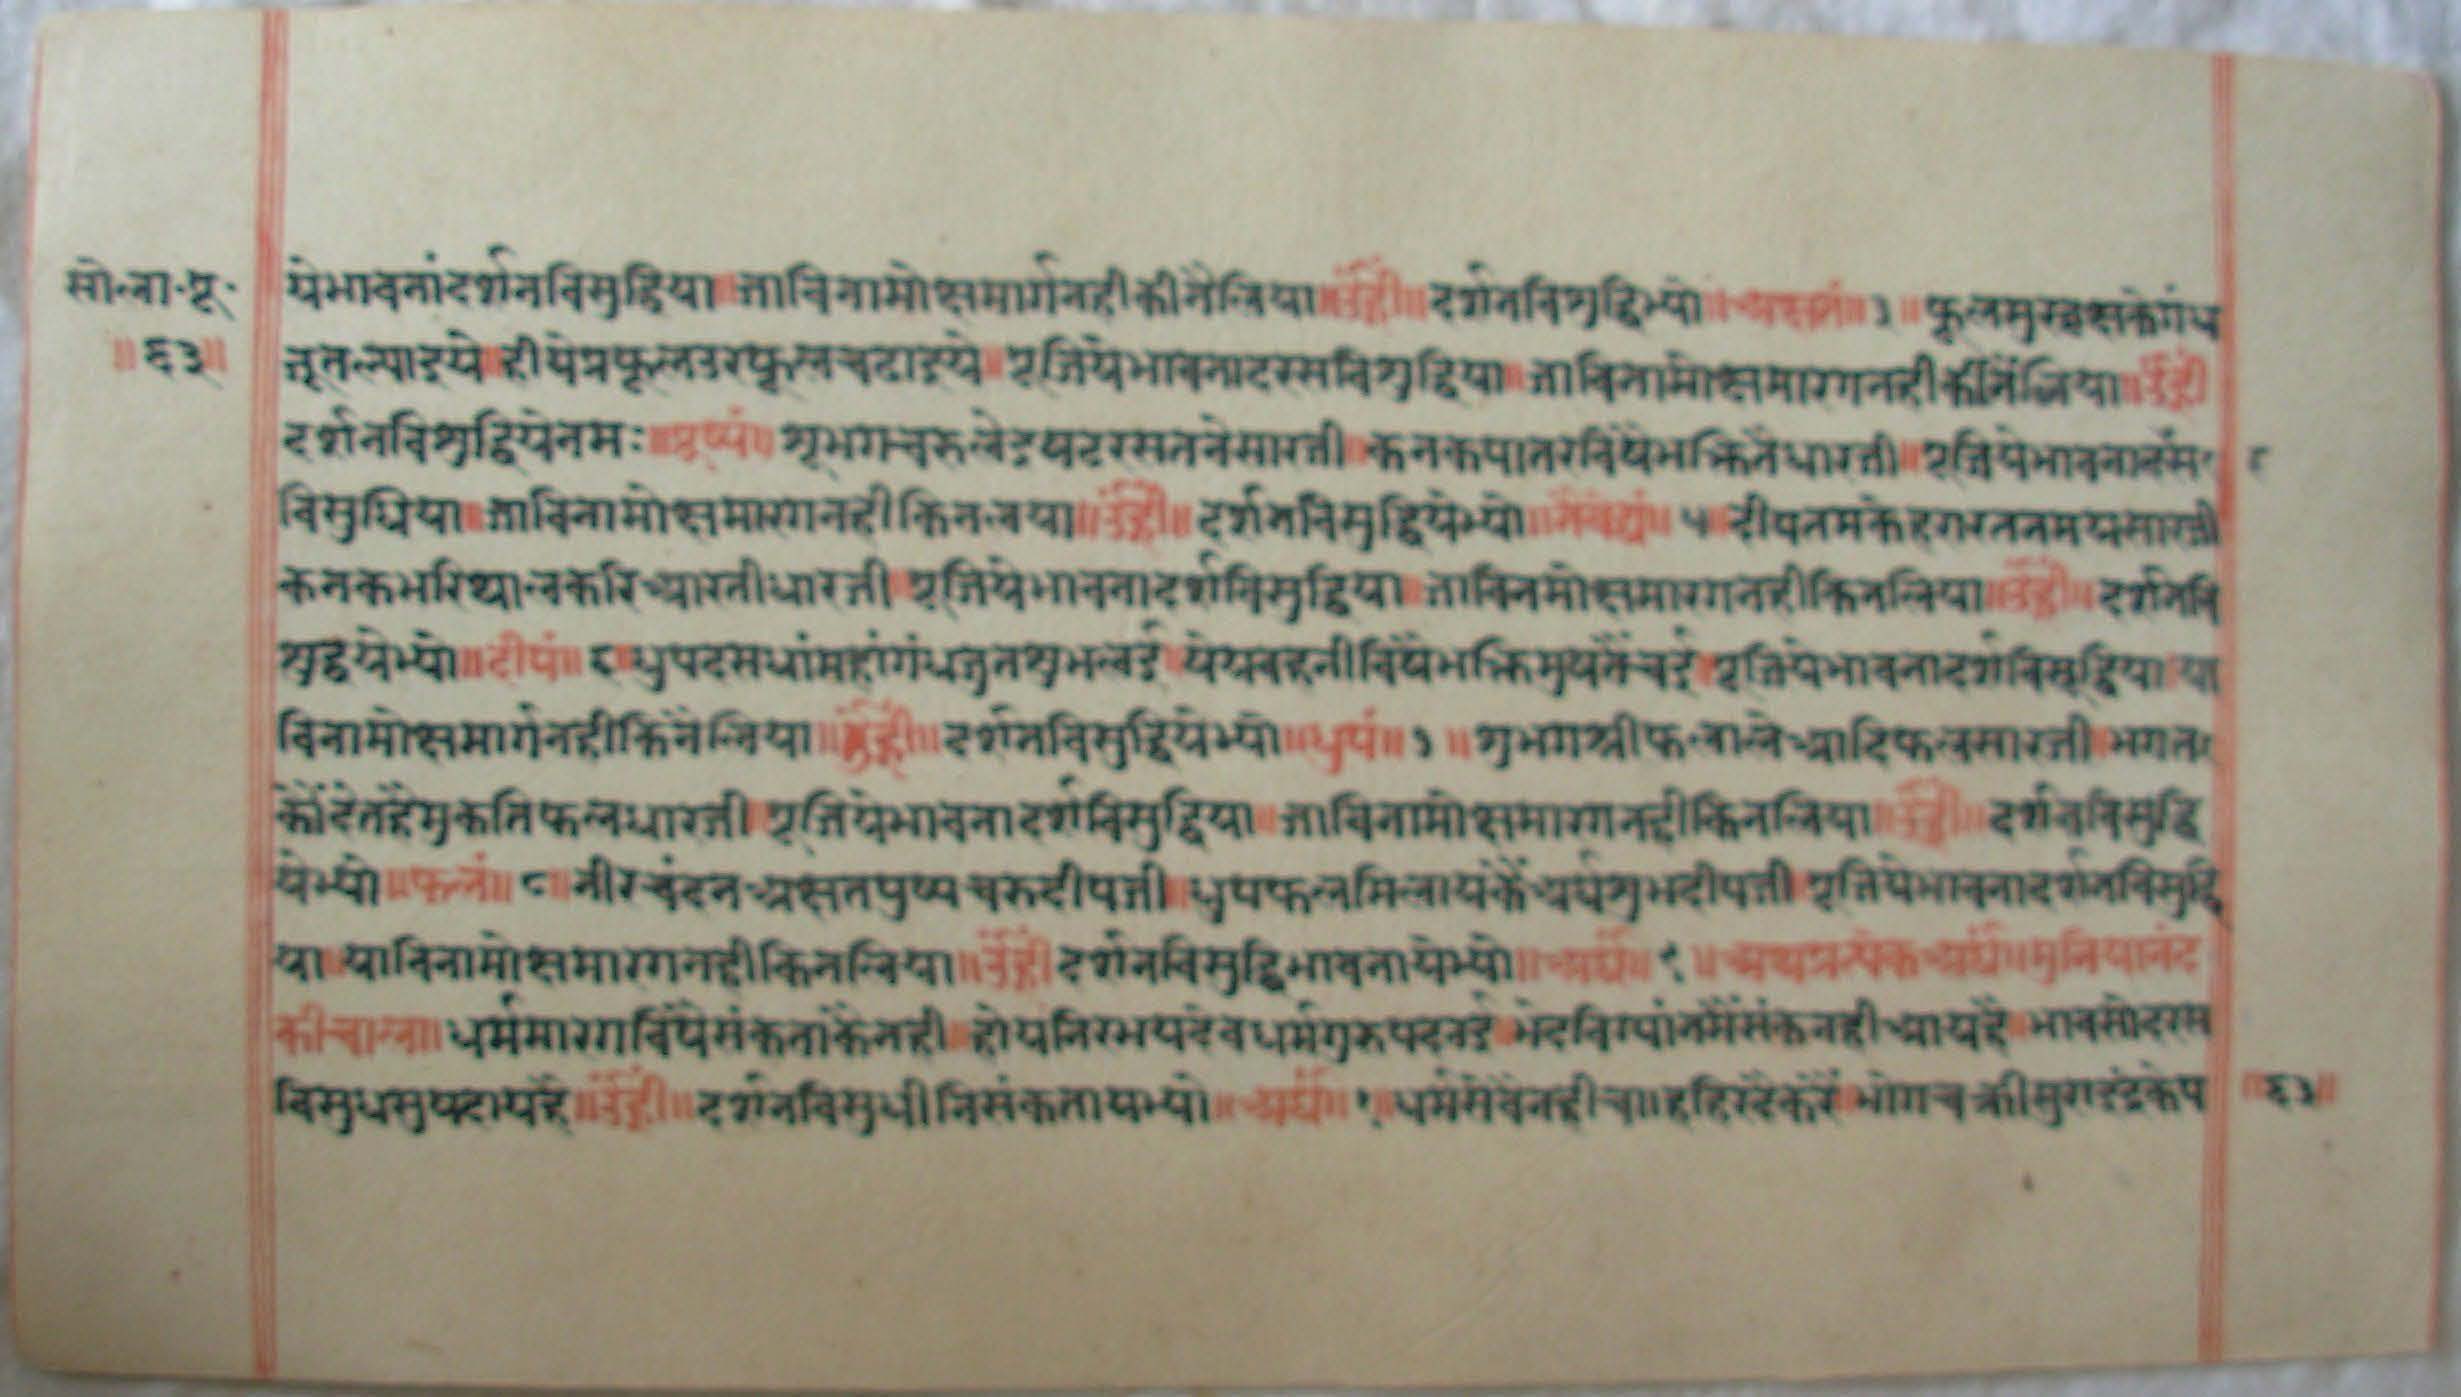 सो॰ना॰पू॰
॥६३॥
येभावनांदर्शनविसुद्धिया॥जाविनामोक्षमार्गनहीकीनैलिया॥उँह्रीं॥दर्शनविशुद्धिभ्यो॥अक्षतं॥३॥फूलसुरवृक्षकेगंध
जूतल्याइये॥दीयेत्रफूलउरफूलचढाइये॥पूजियेभावनादरसविशुद्धिया॥जाविनामोक्षमारगनहीकीनैंलिया॥उँह्रीं
दर्शनविशुद्धियेनमः॥पुष्पं॥शूभगचरुलेइषटरसतनेसारजी॥कनकपातरविषैभक्तितैधारजी॥पूजियेभावनादर्स
विसुधिया॥जाविनामोक्षमारगनहीकिनलया॥उँह्रीं॥दर्शनविसुद्धियेभ्यो॥नैवेद्यं॥५॥दीपतमकेहगरतनमयसारजी
कनकभरिथालकरिआरतीधारजी॥पूजियेभावनादर्शविसुद्धिया॥जाविनमोक्षमारगनहीकिनलिया॥उँह्रीं॥दर्शनवि
शुद्धयेभ्यो॥दीपं॥६॥धुपदसधांमहांगंधजुतशुभलई॥येयवहनीविषैभक्तिमुषतैंचई॥पूजियेभावनादर्शविसूद्धिया॥या
विनामोक्षमार्गनहीकिनैलिया॥उँह्रीं॥दर्शनविसुद्धियेभ्यो॥धुपं॥७॥शुभगश्रीफलालेआदिफलसारजी॥भगत
कोंदेतहैमुकतिफलधारजी॥पूजियेभावनादर्शविसुद्धिया॥जाविनामोक्षमारगनहीकिनलिया॥उँह्रीं॥दर्शनविसुद्धि
येभ्यो॥फलं॥८॥नीरचंदनअक्षतपुष्पचरुदीपजी॥धुपफलमिलायकैंअर्घशुभदीपजी॥पूजियेभावनादर्शनविसुद्धि
या॥याविनामोक्षमारगनहीकिनलिया॥उँह्रीं॥दर्शनविसुद्धिभावनायेभ्यो॥अर्घं॥९॥अथप्रत्येकअर्घं॥मुनियानंद
कीचाल॥धर्ममारगविषैसंकताकैनही॥होयनिरभयदेवधर्मगुरुपदनई॥भेदविग्यांनमैंसंकनहीआयहै॥भावसोदरस
विसुधसुषदायहै॥उँह्रीं॥दर्शनविसुधीनिसंकतायभ्यो॥अर्घं॥१॥धर्मसेवैनहीचाहहिरदैकरैं॥भोगचक्रीसुराइंद्रकेप
॥६३॥